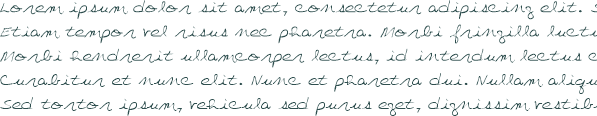 Lorem ipsum dolor sit amet, consectetur adipiscing elit. S
Etiam tempor vel risus nec pharetra. Morbi fringilla luctu
Morbi hendrerit ullamcorper lectus, id interdum lectus c
Curabitur et nunc elit. Nunc et pharetra dui. Nullam aliqu
Sed tortor ipsum, vehicula sed purus eget, dignissim vestib